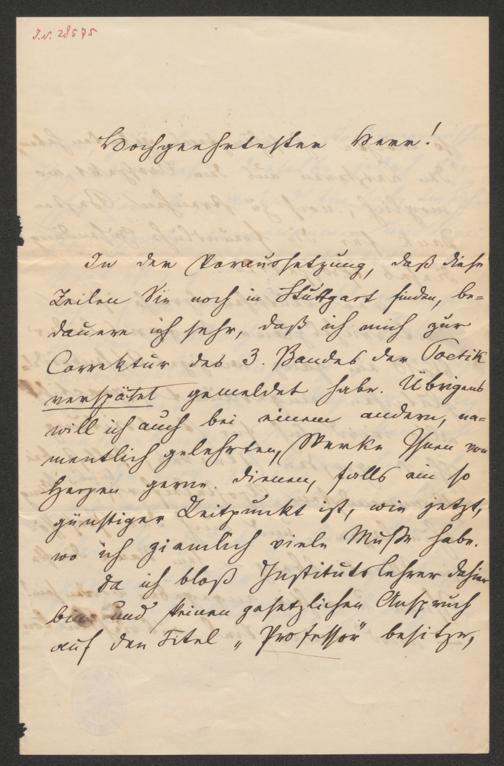 I.N. 28575
Hochgeehrtester Herr!
In der Voraussetzung, daß diese
Zeilen Sie noch in Stuttgart finden, be-
dauere ich sehr, daß ich mich zur
Correktur des 3. Bandes der Poetik
verspätet gemeldet habe. Übrigens
will ich auch bei einem andern, na-
mentlich gelehrten, Werke Ihnen von
Herzen gerne dienen, falls ein so
günstiger Zeitpunkt ist, wie jetzt,
wo ich ziemlich viele Muße habe.
Da ich bloß Institutslehrer dahier
bin und keinen gesetzlichen Anspruch
auf den Titel „Professor" besitze,